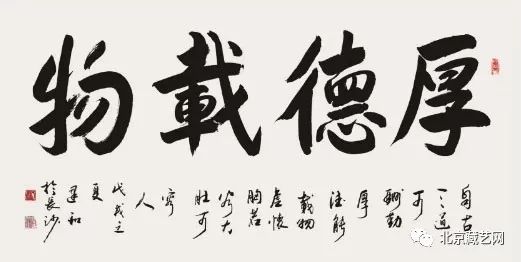 厚德載物
自古
天道可
酬勤
厚
德能
載物
虚懷
胸若
谷大
肚可
容
人
戊戌之
夏
建和
於長沙
北京藏艺网